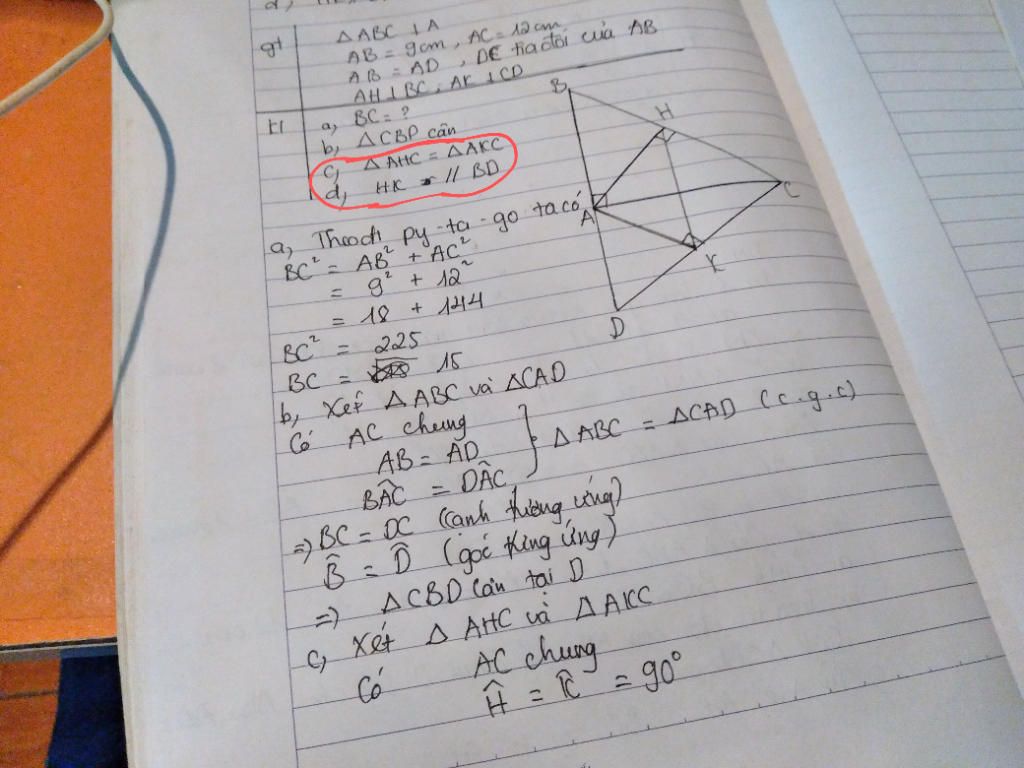 gt
△ABC ⊥ A
AB = 9cm, AC = 12cm
AB = AD, DE tia đối của AB
AH ⊥ BC, AK ⊥ CD
kl
a, BC = ?
b, △CBD cân
c, △AHC = △AKC
d, HK // BD
B
H
A
C
K
D
a, Theo đl py-ta-go ta có
BC² = AB² + AC²
= 9² + 12²
= 18 + 144
BC² = 225
BC = 15
b, Xét △ABC và △CAD
Có AC chung
AB = AD
BÂC = DÂC
△ABC = △CAD (c.g.c)
=> BC = DC (cạnh tương ứng)
B̂ = D̂ (góc tương ứng)
=> △CBD cân tại D
c, Xét △AHC và △AKC
Có AC chung
Ĥ = K̂ = 90°